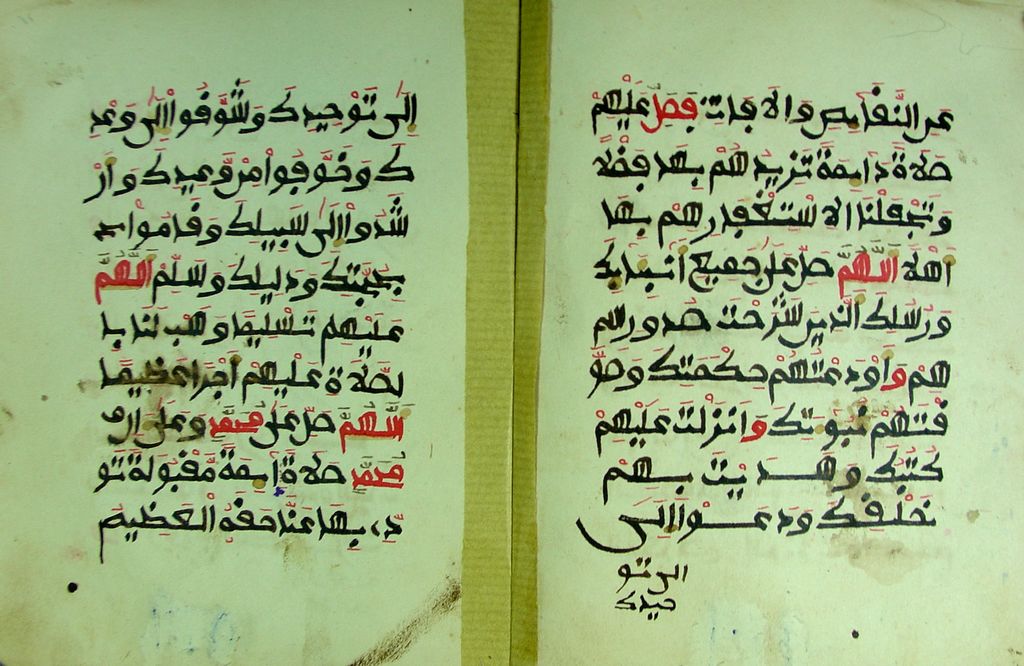 عن النقايص والافات فصل عليهم
صلاة دايمة تزيدهم بها فضلا
وتجعلنا الاستغفارهم بها
اهلا اللهم صل على جميع انبيايك
ورسلك الذين شرحت صدورهم
هم وأودعتهم حكمتك وطو
قتهم نبوتك وانزلت عليهم
كتبك وهديت بهم
خلقك ودعوا الى
الى تو
حيدك
الى توحيدك وشوقوا الى وعد
ك وخوفوا من وعيدك وأر
شدوا الى سبيلك وقاموا
بحجتك ودليلك وسلم اللهم
عليهم تسليما وهب لنا با
لصلاة عليهم أجرا عظيما
اللهم صل على محمد وعلى ال
محمد صلاة دايمة مقبولة تو
د بها عنا حقه العظيم